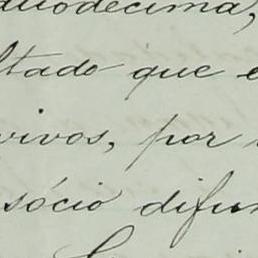 duodecima,
ltado que e
vivos, por
sócio difun